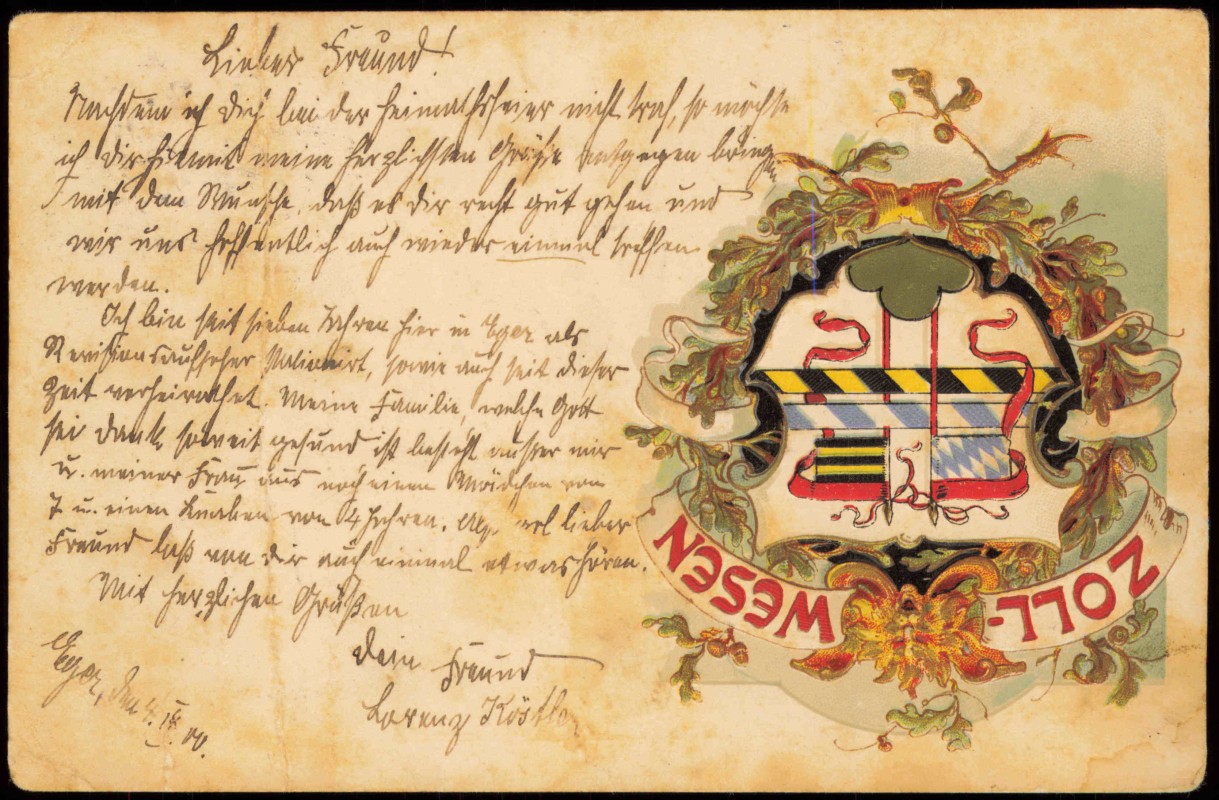 Lieber Freund!
Nachdem ich Dich bei der Heimathsfeier nicht traf, so möchte
ich Dir hiemit meine herzlichsten Grüße entgegen bringen
mit dem Wunsche, daß es dir recht gut gehen und
wir uns hoffentlich auch wieder einmal treffen
werden.
Ich bin seit sieben Jahren hier in Eger als
Revisionsaufseher stationirt, sowie auch seit dieser
Zeit verheirathet. Meine Familie, welche Gott
sei Dank soweit gesund ist besteht außer mir
u. meiner Frau aus noch einem Mädchen von
7 u. einen Knaben von 4 Jahren. Also lieber
Freund laß von dir auch einmal etwas hören.
Mit herzlichen Grüßen
Dein Freund
Lorenz Köstler
Eger, den 4. IX. 00.
ZOLL-WESEN